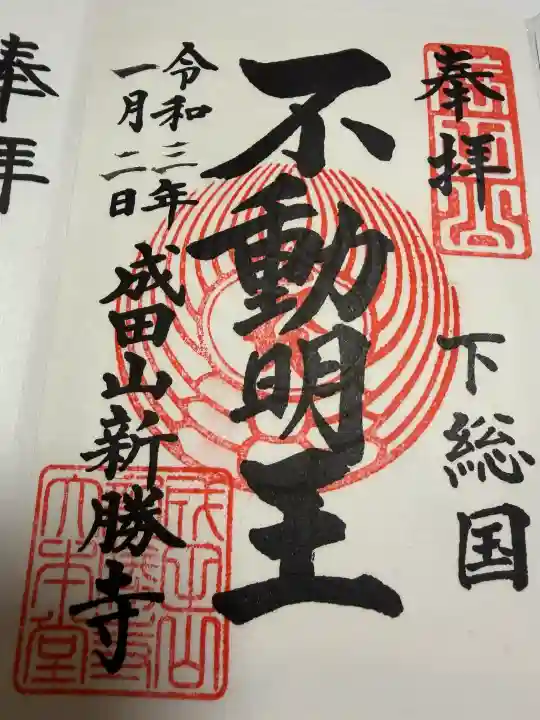 奉拝
下総国
不動明王
令和三年
一月二日
成田山新勝寺
成田山
大本堂
奉拝